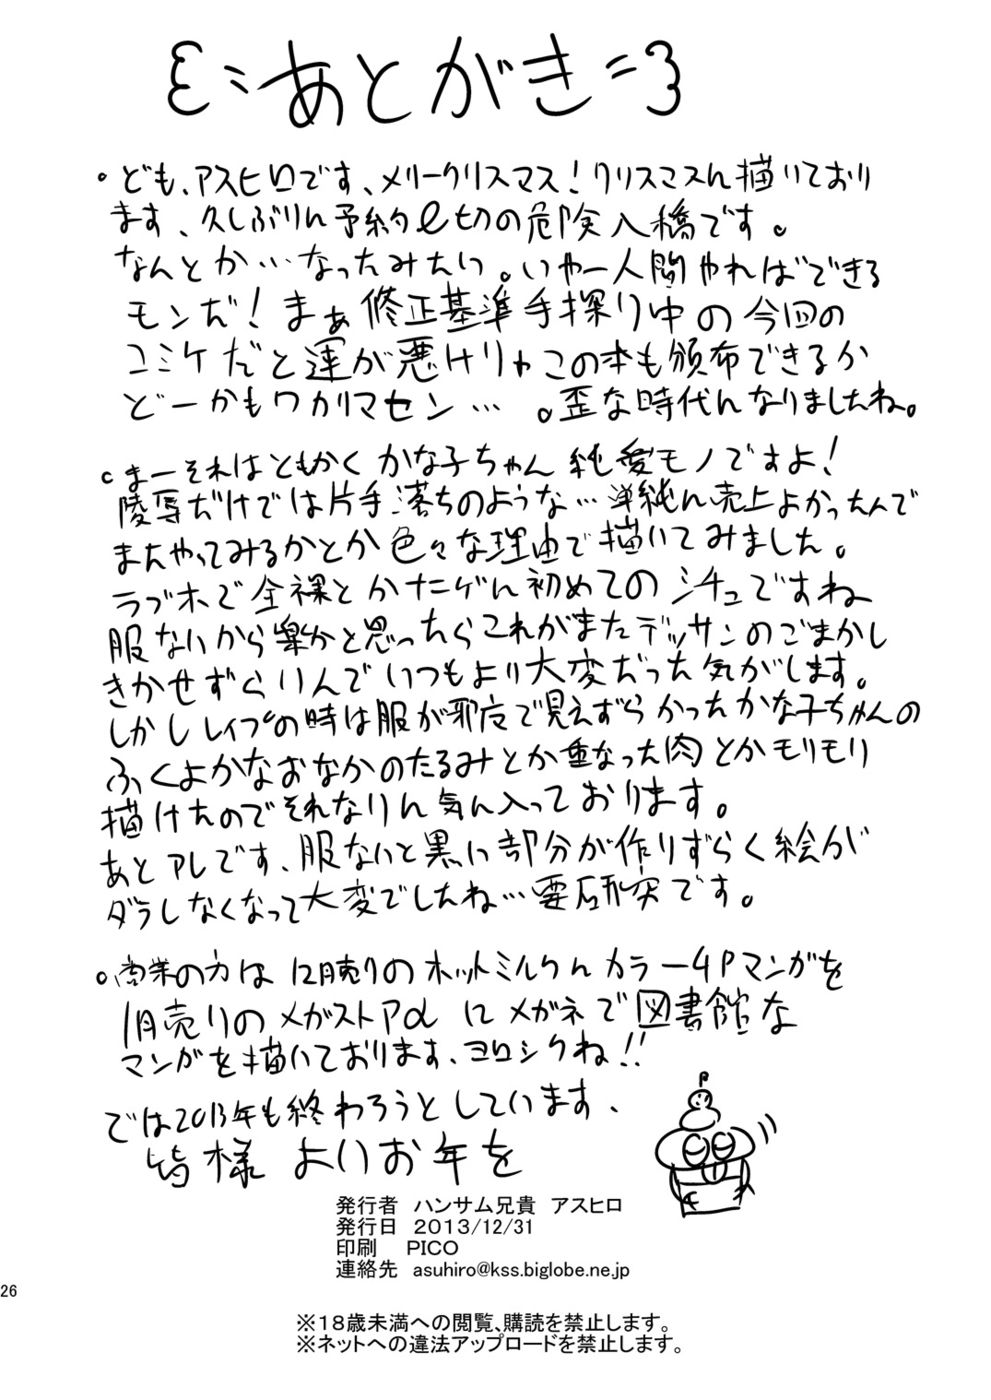 あとがき
ども、アスヒロです、メリークリスマス！クリスマスに描いており
ます、久しぶりに予約〆切の危険入稿です。
なんとか…なったみたい。いやー人間やればできる
モンだ！まぁ修正基準手探り中の今回の
コミケだと運が悪けりゃこの本も頒布できるか
どーかもワカリマセン…。歪な時代になりましたね。
まーそれはともかくかな子ちゃん純愛モノですよ！
陵辱だけでは片手落ちのような…単純に売上よかったんで
またやってみるかとか色々な理由で描いてみました。
ラブホで全裸とかナニゲに初めてのシチュですね
服ないから楽かと思ったらこれがまたデッサンのごまかし
きかせずらいんでいつもより大変だった気がします。
しかしレイプの時は服が邪魔で見えずらかったかな子ちゃんの
ふくよかなおなかのたるみとか重なった肉とかモリモリ
描けたのでそれなりに気に入っております。
あとアレです、服ないと黒い部分が作りずらく絵が
ダラしなくなって大変でしたね…要研究です。
商業の方は12月売りのホットミルクにカラー4Pマンガを
1月売りのメガストアαにメガネで図書館な
マンガを描いております、ヨロシクね!!
では2013年も終わろうとしています、
皆様よいお年を
発行者　ハンサム兄貴　アスヒロ
発行日　2013/12/31
印刷　PICO
連絡先　asuhiro@kss.biglobe.ne.jp
26
※18歳未満への閲覧、購読を禁止します。
※ネットへの違法アップロードを禁止します。